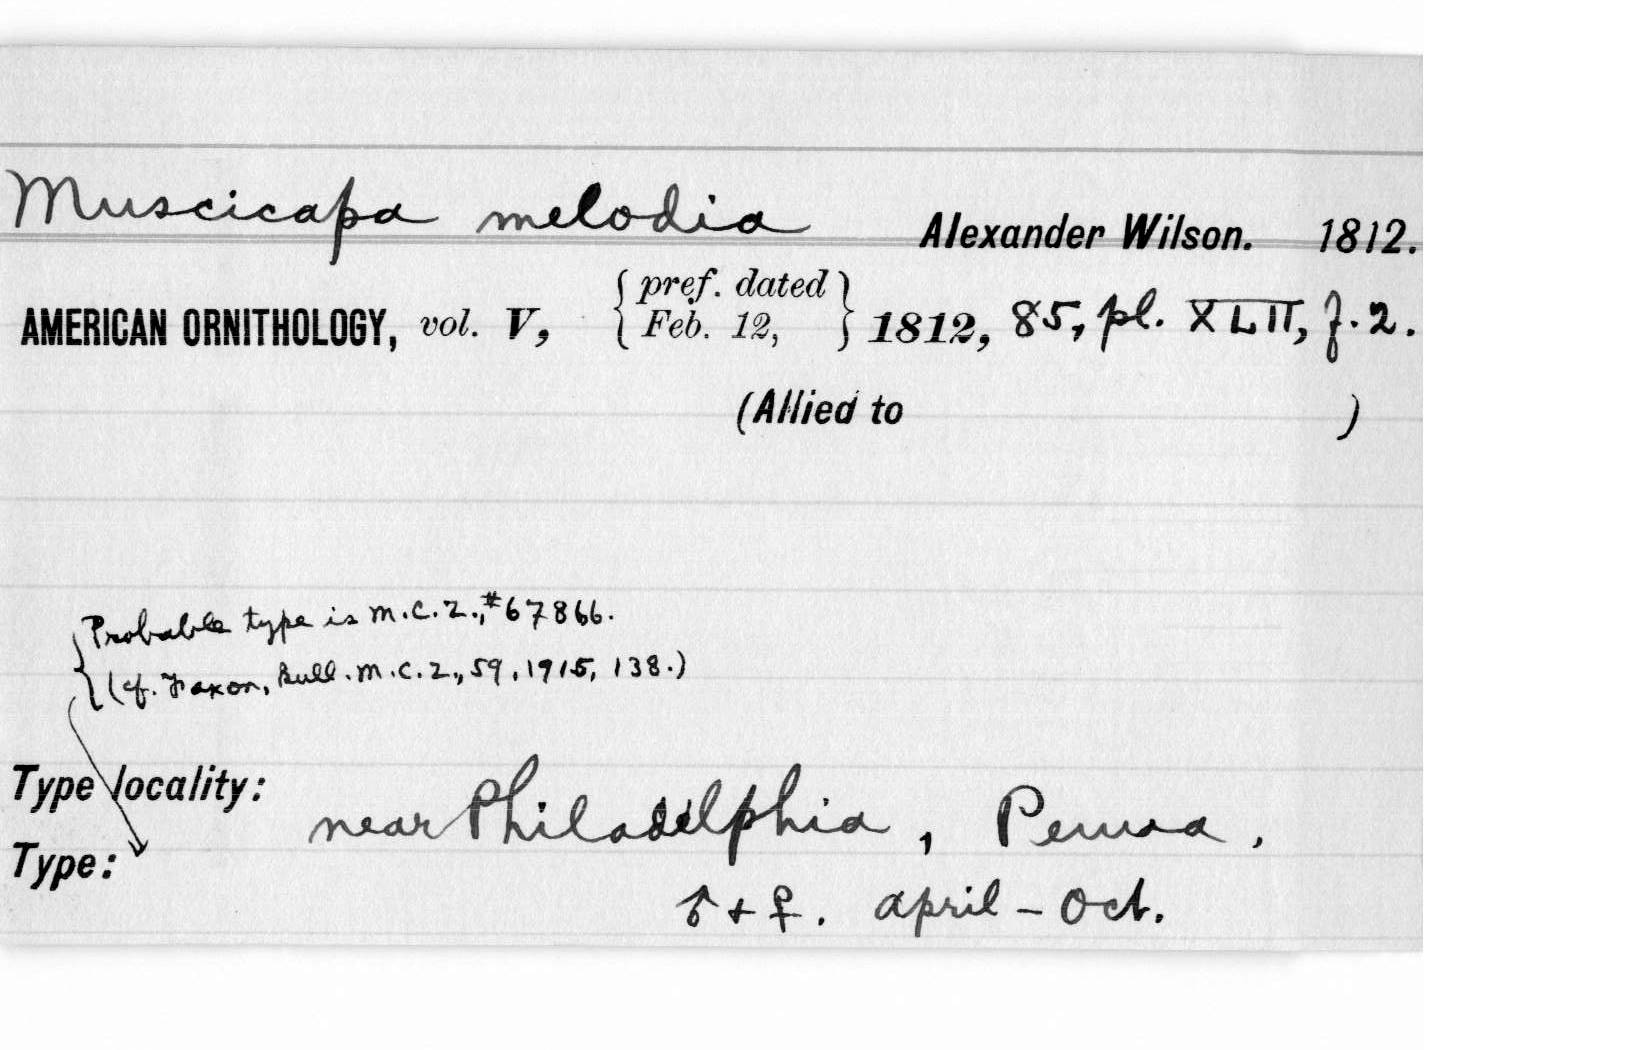 Muscicapa melodia Alexander Wilson. 1812.
AMERICAN ORNITHOLOGY, vol. V, { pref. dated Feb. 12, } 1812, 85, pl. XLII, f. 2.
(Allied to )
{ Probable type is M.C.Z., #67866.
(cf. Faxon, Bull. M.C.Z., 59, 1915, 138.)
Type locality: near Philadelphia, Penna,
Type:
♂ + ♀. April - Oct.